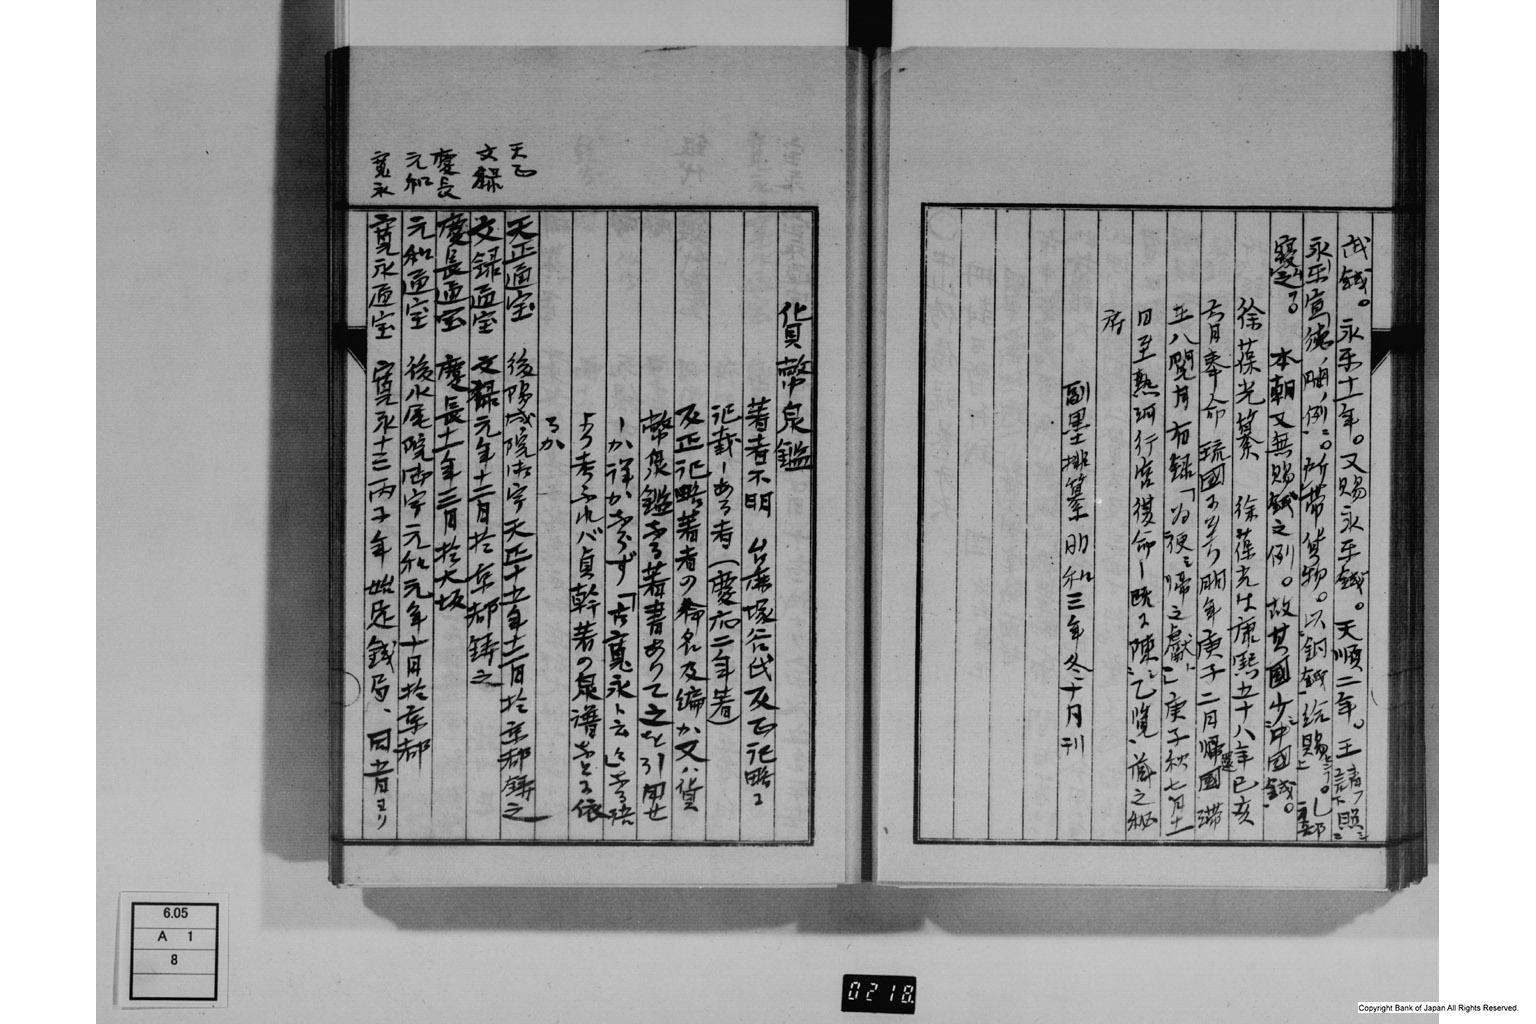 武銭。永楽十一年。又賜永楽銭。天順二年。王請下照
永楽宣徳ノ間ノ例。所帯貨物。以銅銭給賜上。礼部
寝之。本朝又無賜銭之例。故其国少中国銭。
徐葆光纂 徐葆光ハ康熙五十八年己亥
六月奉命琉国 明年庚子二月帰国還 滞
在八閲月有録「為便ニ帰之献」庚子秋七月十一
日至熱河行宮復命 陳乙覧 蔵之秘
府
副墨排纂 明和三年冬十月刊
貨幣泉鑑
著者不明 台麓塚谷氏及正記略ニ
記載シある者(慶応二年著)
及正記略著者の輪名及編か又ハ貨
幣泉鑑なる著書ありて之を引用せ
しか詳かならず「古寛永ト云々」なる語
より考ふれバ貞幹著の泉譜などに依
るか
天正 天正通宝 後陽成院御宇天正十五年十二月於京都鋳之
文禄 文禄通宝 文禄元年十二月於京都鋳之
慶長 慶長通宝 慶長十一年三月於大坂
元和 元和通宝 後水尾院御宇元和元年十月於京都
寛永 寛永通宝 寛永十三丙子年始足銭局、同五月ヨリ
6.05
A 1
8
0218.
Copyright Bank of Japan All Rights Reserved.